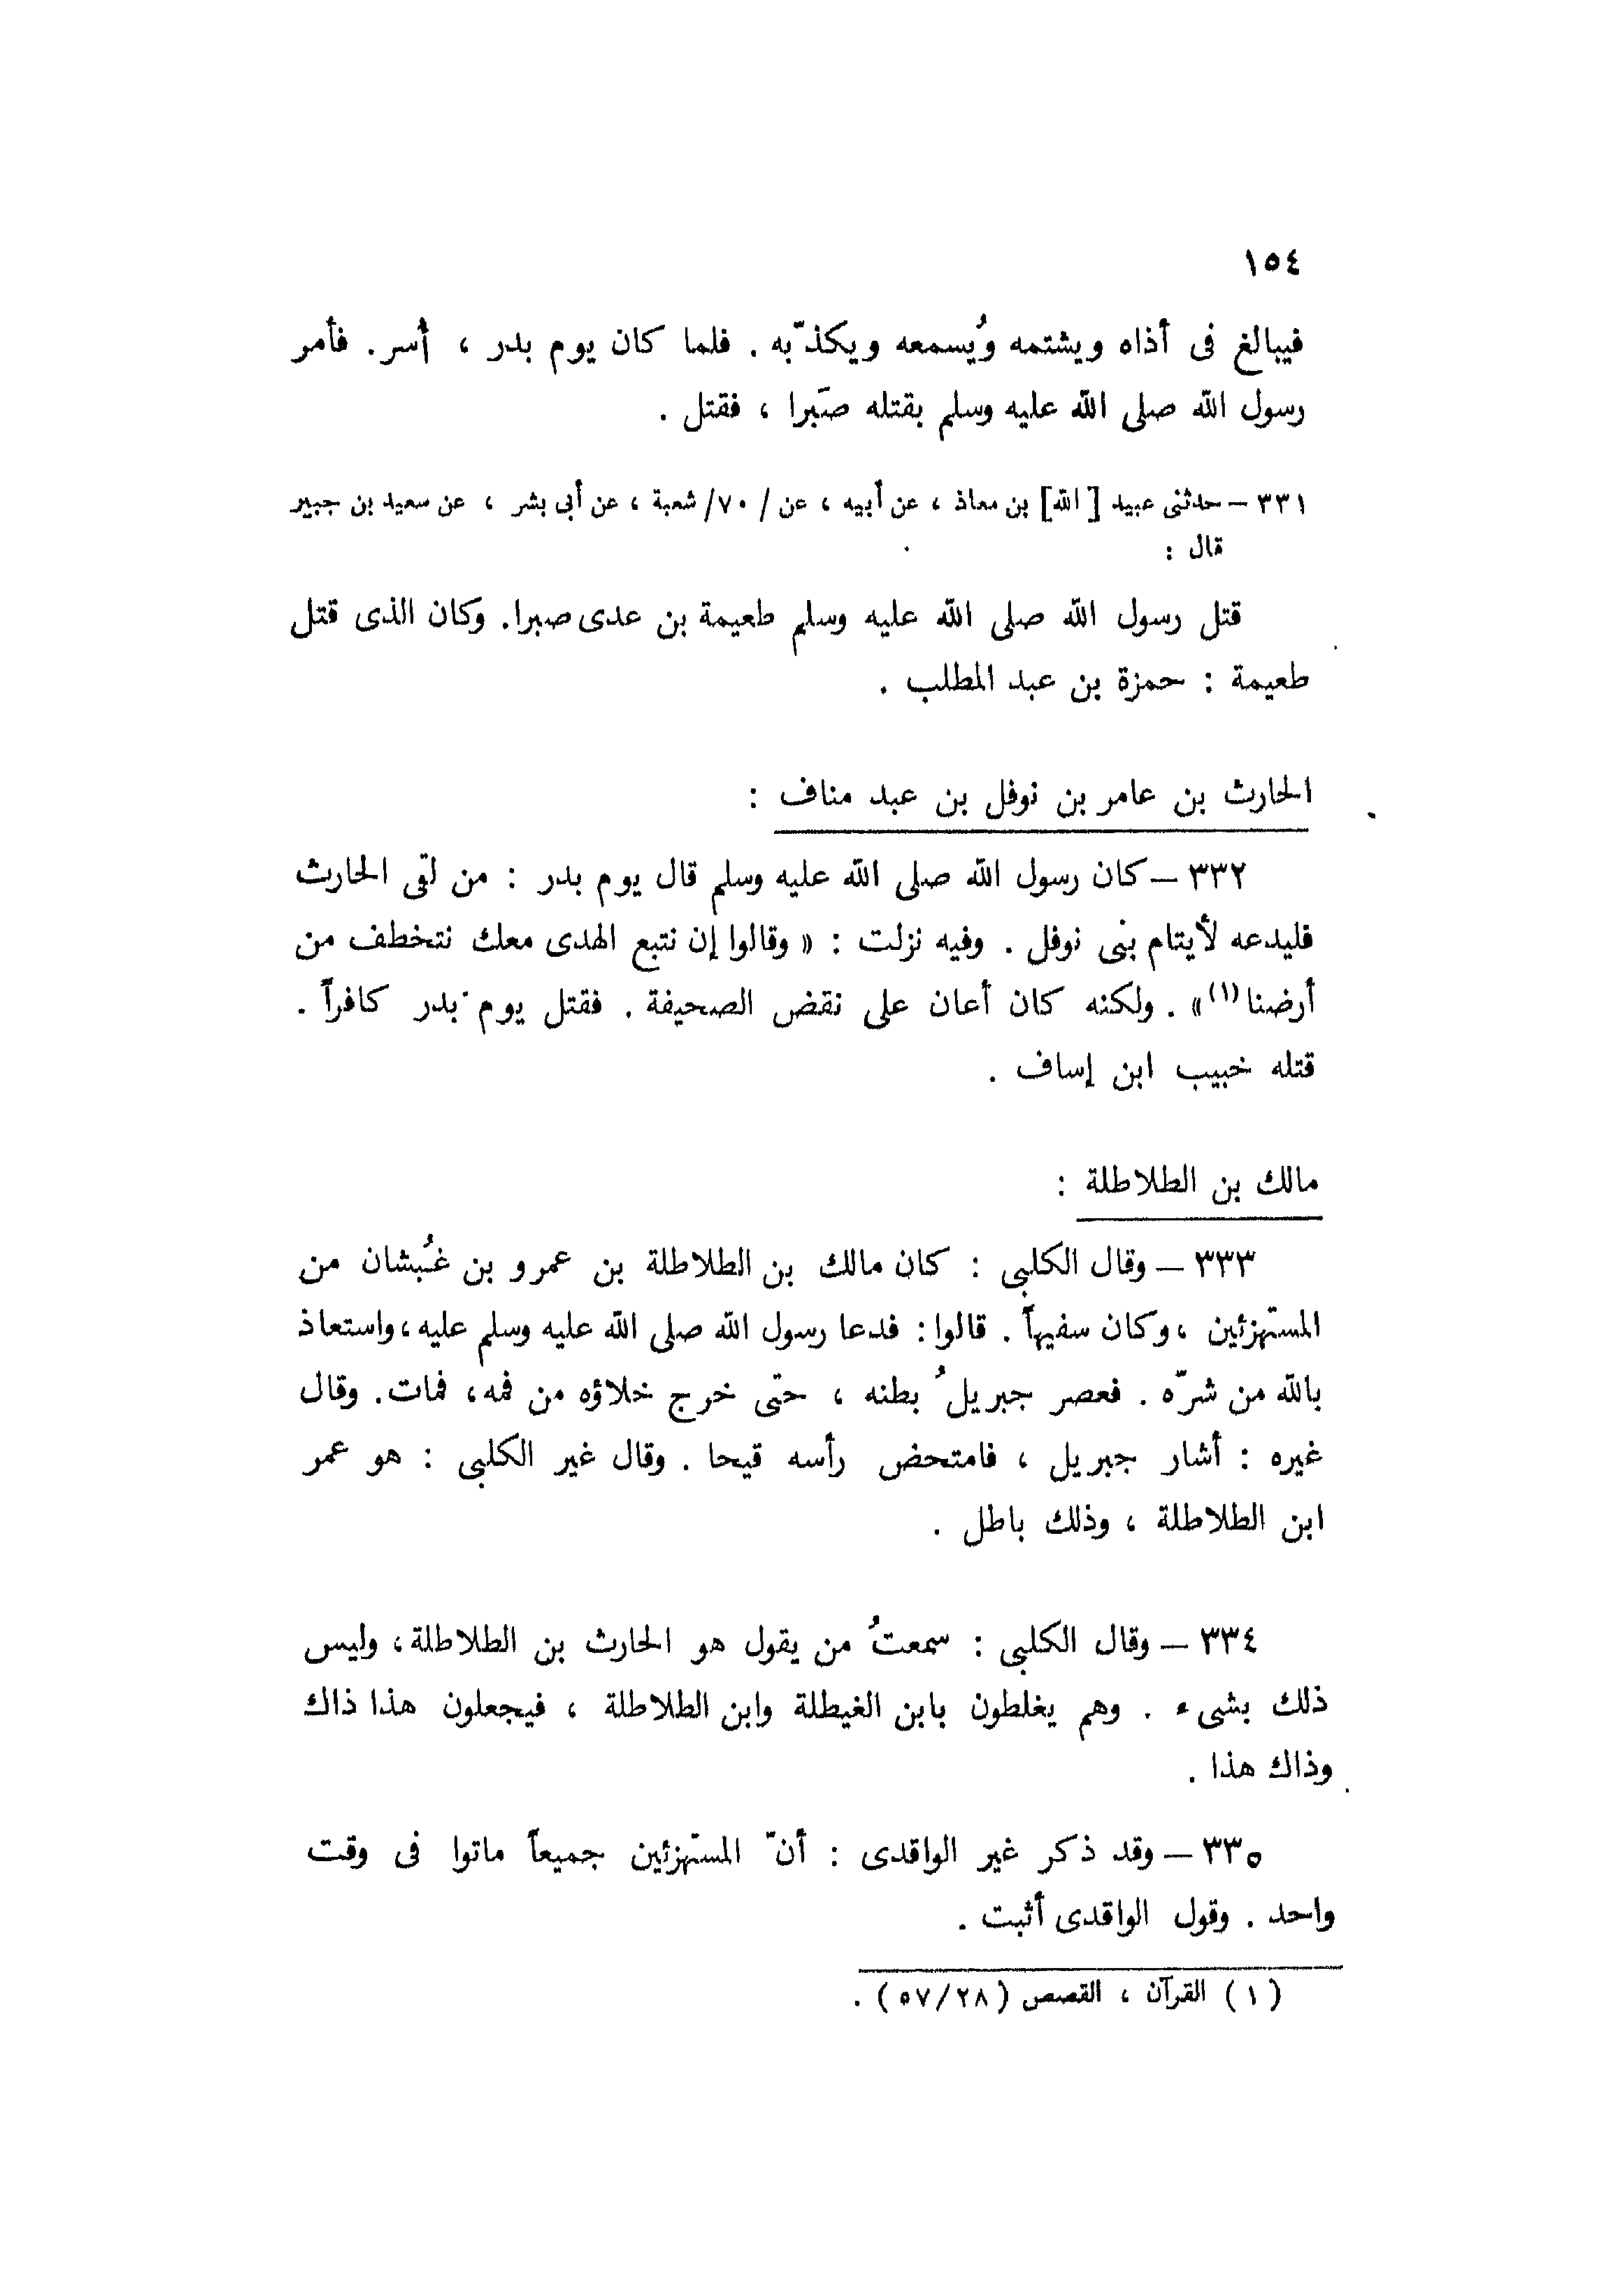 ١٥٤
فيبالغ فى أذاه ويشتمه ويُسمعه ويكذّبه . فلما كان يوم بدر ، أُسر. فأمر
رسول الله صلى الله عليه وسلم بقتله صَبرا ، فقتل .
٣٣١ – حدثنى عبيد [ الله] بن معاذ ، عن أبيه ، عن / ٧٠/ شعبة ، عن أبى بشر ، عن سعيد بن جبير
قال :
قتل رسول الله صلى الله عليه وسلم طعيمة بن عدى صبرا. وكان الذى قتل
طعيمة : حمزة بن عبد المطلب .
الحارث بن عامر بن نوفل بن عبد مناف :
٣٣٢ – كان رسول الله صلى الله عليه وسلم قال يوم بدر : من لقى الحارث
فليدعه لأيتام بنى نوفل . وفيه نزلت : « وقالوا إن نتبع الهدى معك نتخطف من
أرضنا(١)» . ولكنه كان أعان على نقض الصحيفة . فقتل يوم بدر كافراً .
قتله خبيب ابن إساف .
مالك بن الطلاطلة :
٣٣٣ – وقال الكلبى : كان مالك بن الطلاطلة بن عمرو بن غُبشان من
المستهزئين ، وكان سفيهاً . قالوا : فدعا رسول الله صلى الله عليه وسلم عليه ، واستعاذ
بالله من شرّه . فعصر جبريلُ بطنه ، حتى خرج خلاؤه من فمه ، فمات. وقال
غيره : أشار جبريل ، فامتحض رأسه قيحا . وقال غير الكلبى : هو عمر
ابن الطلاطلة ، وذلك باطل .
٣٣٤ – وقال الكلبى : سمعتُ من يقول هو الحارث بن الطلاطلة ، وليس
ذلك بشىء . وهم يغلطون بابن الغيطلة وابن الطلاطلة ، فيجعلون هذا ذاك
وذاك هذا .
٣٣٥ – وقد ذكر غير الواقدى : أنّ المستهزئين جميعاً ماتوا فى وقت
واحد . وقول الواقدى أثبت .
( ١ ) القرآن ، القصص (٥٧/٢٨) .